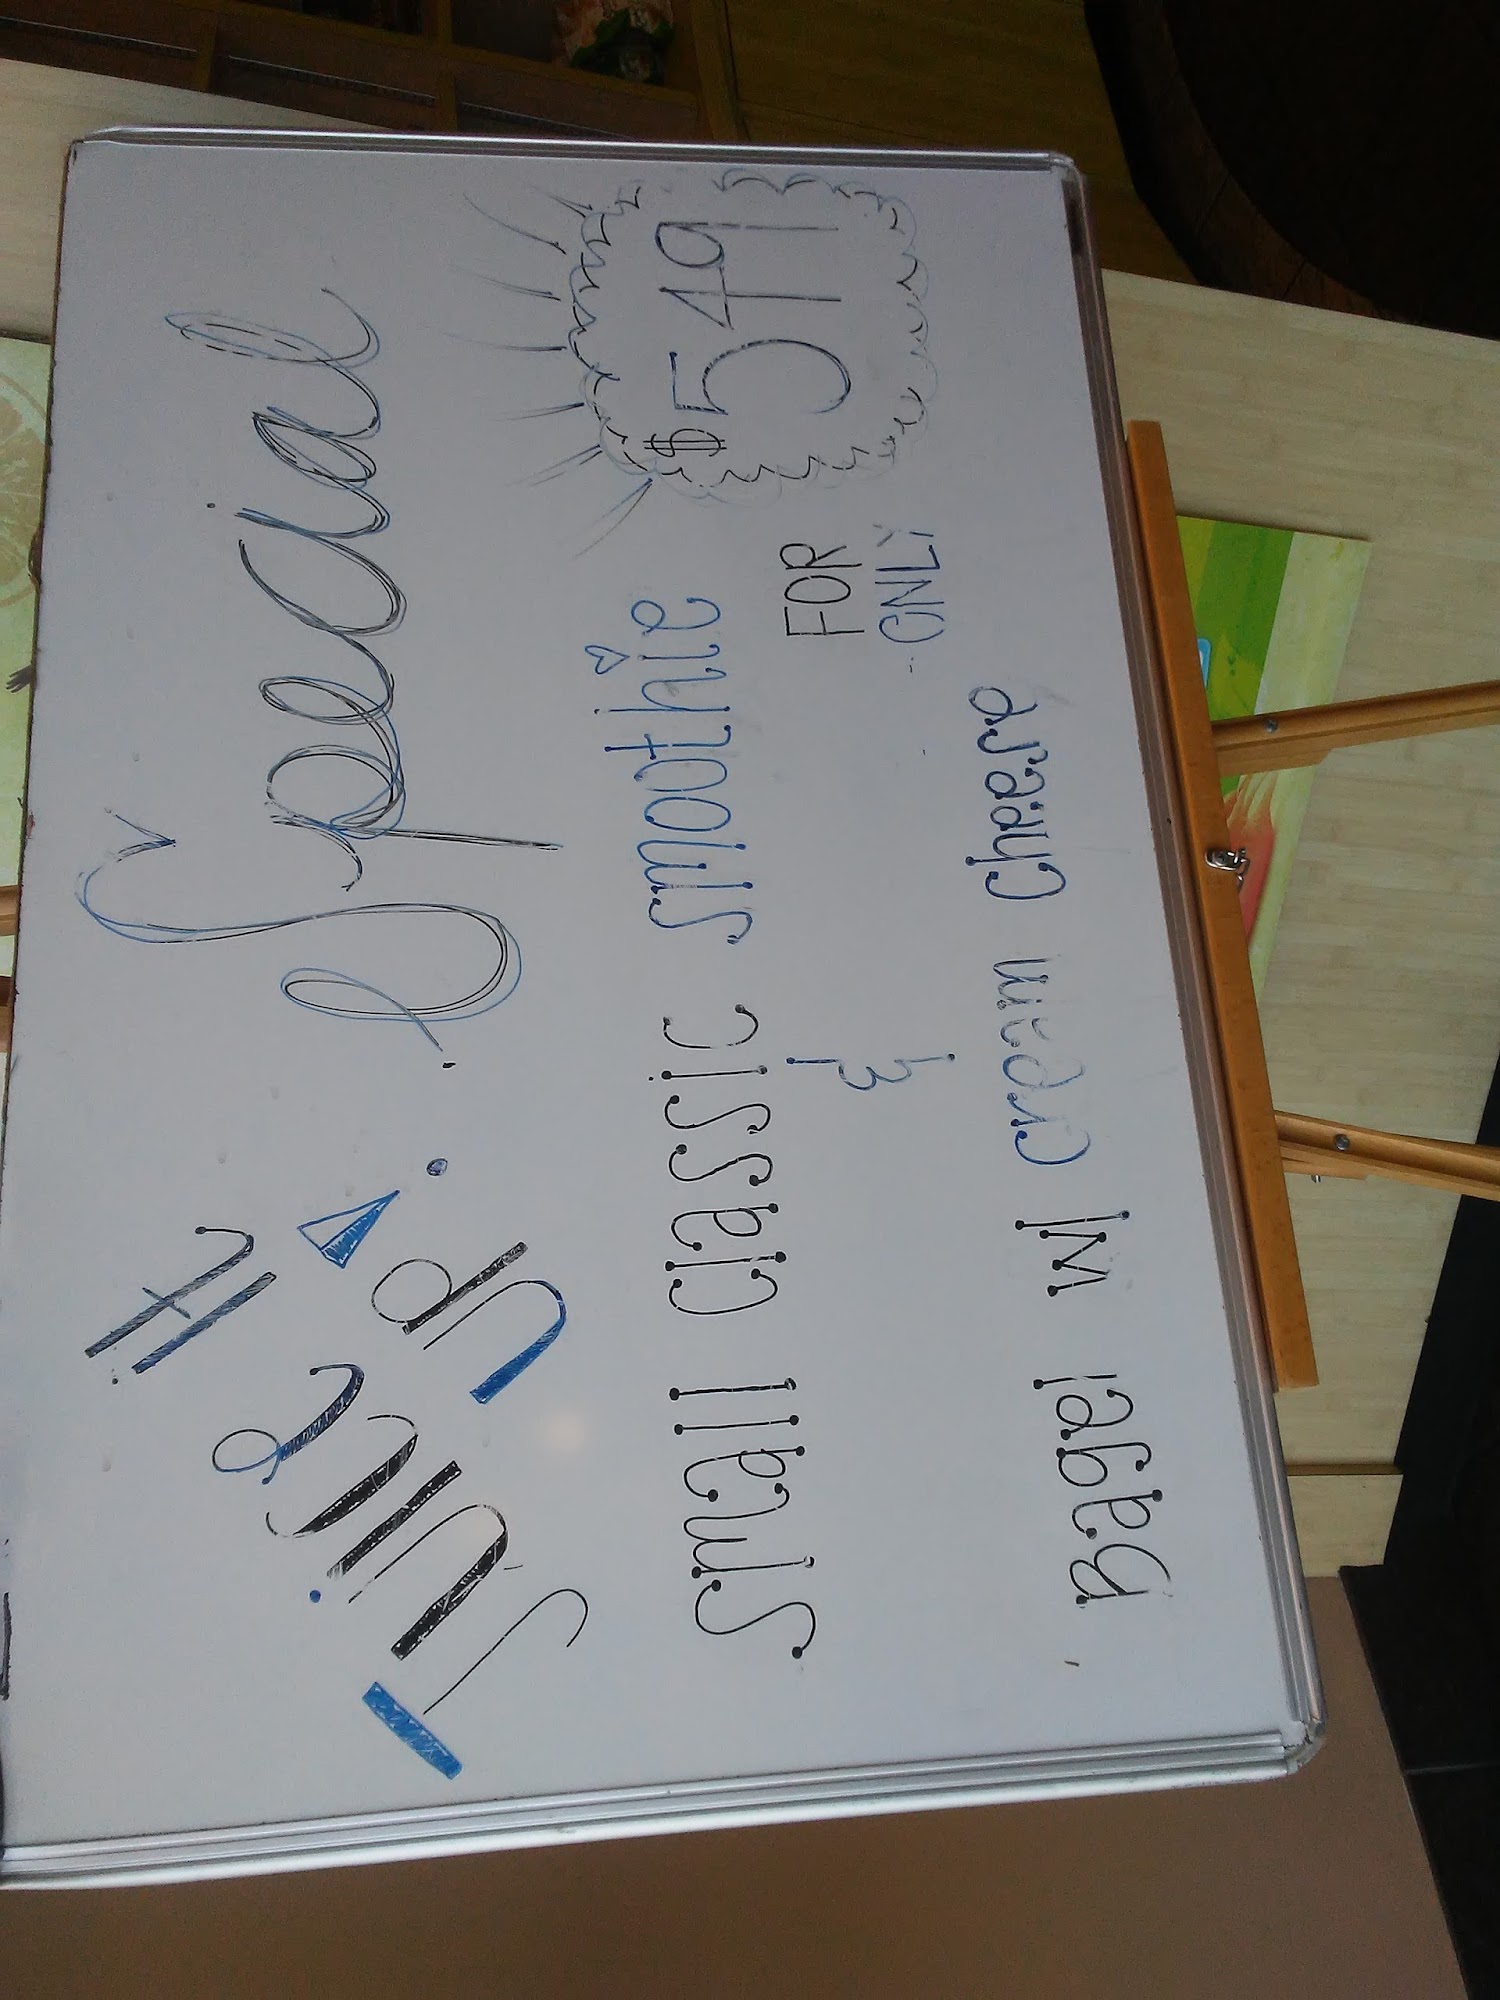 Juice it up!
Special
small classic smoothie
&
Bagel w/ cream cheese
FOR
ONLY
$549